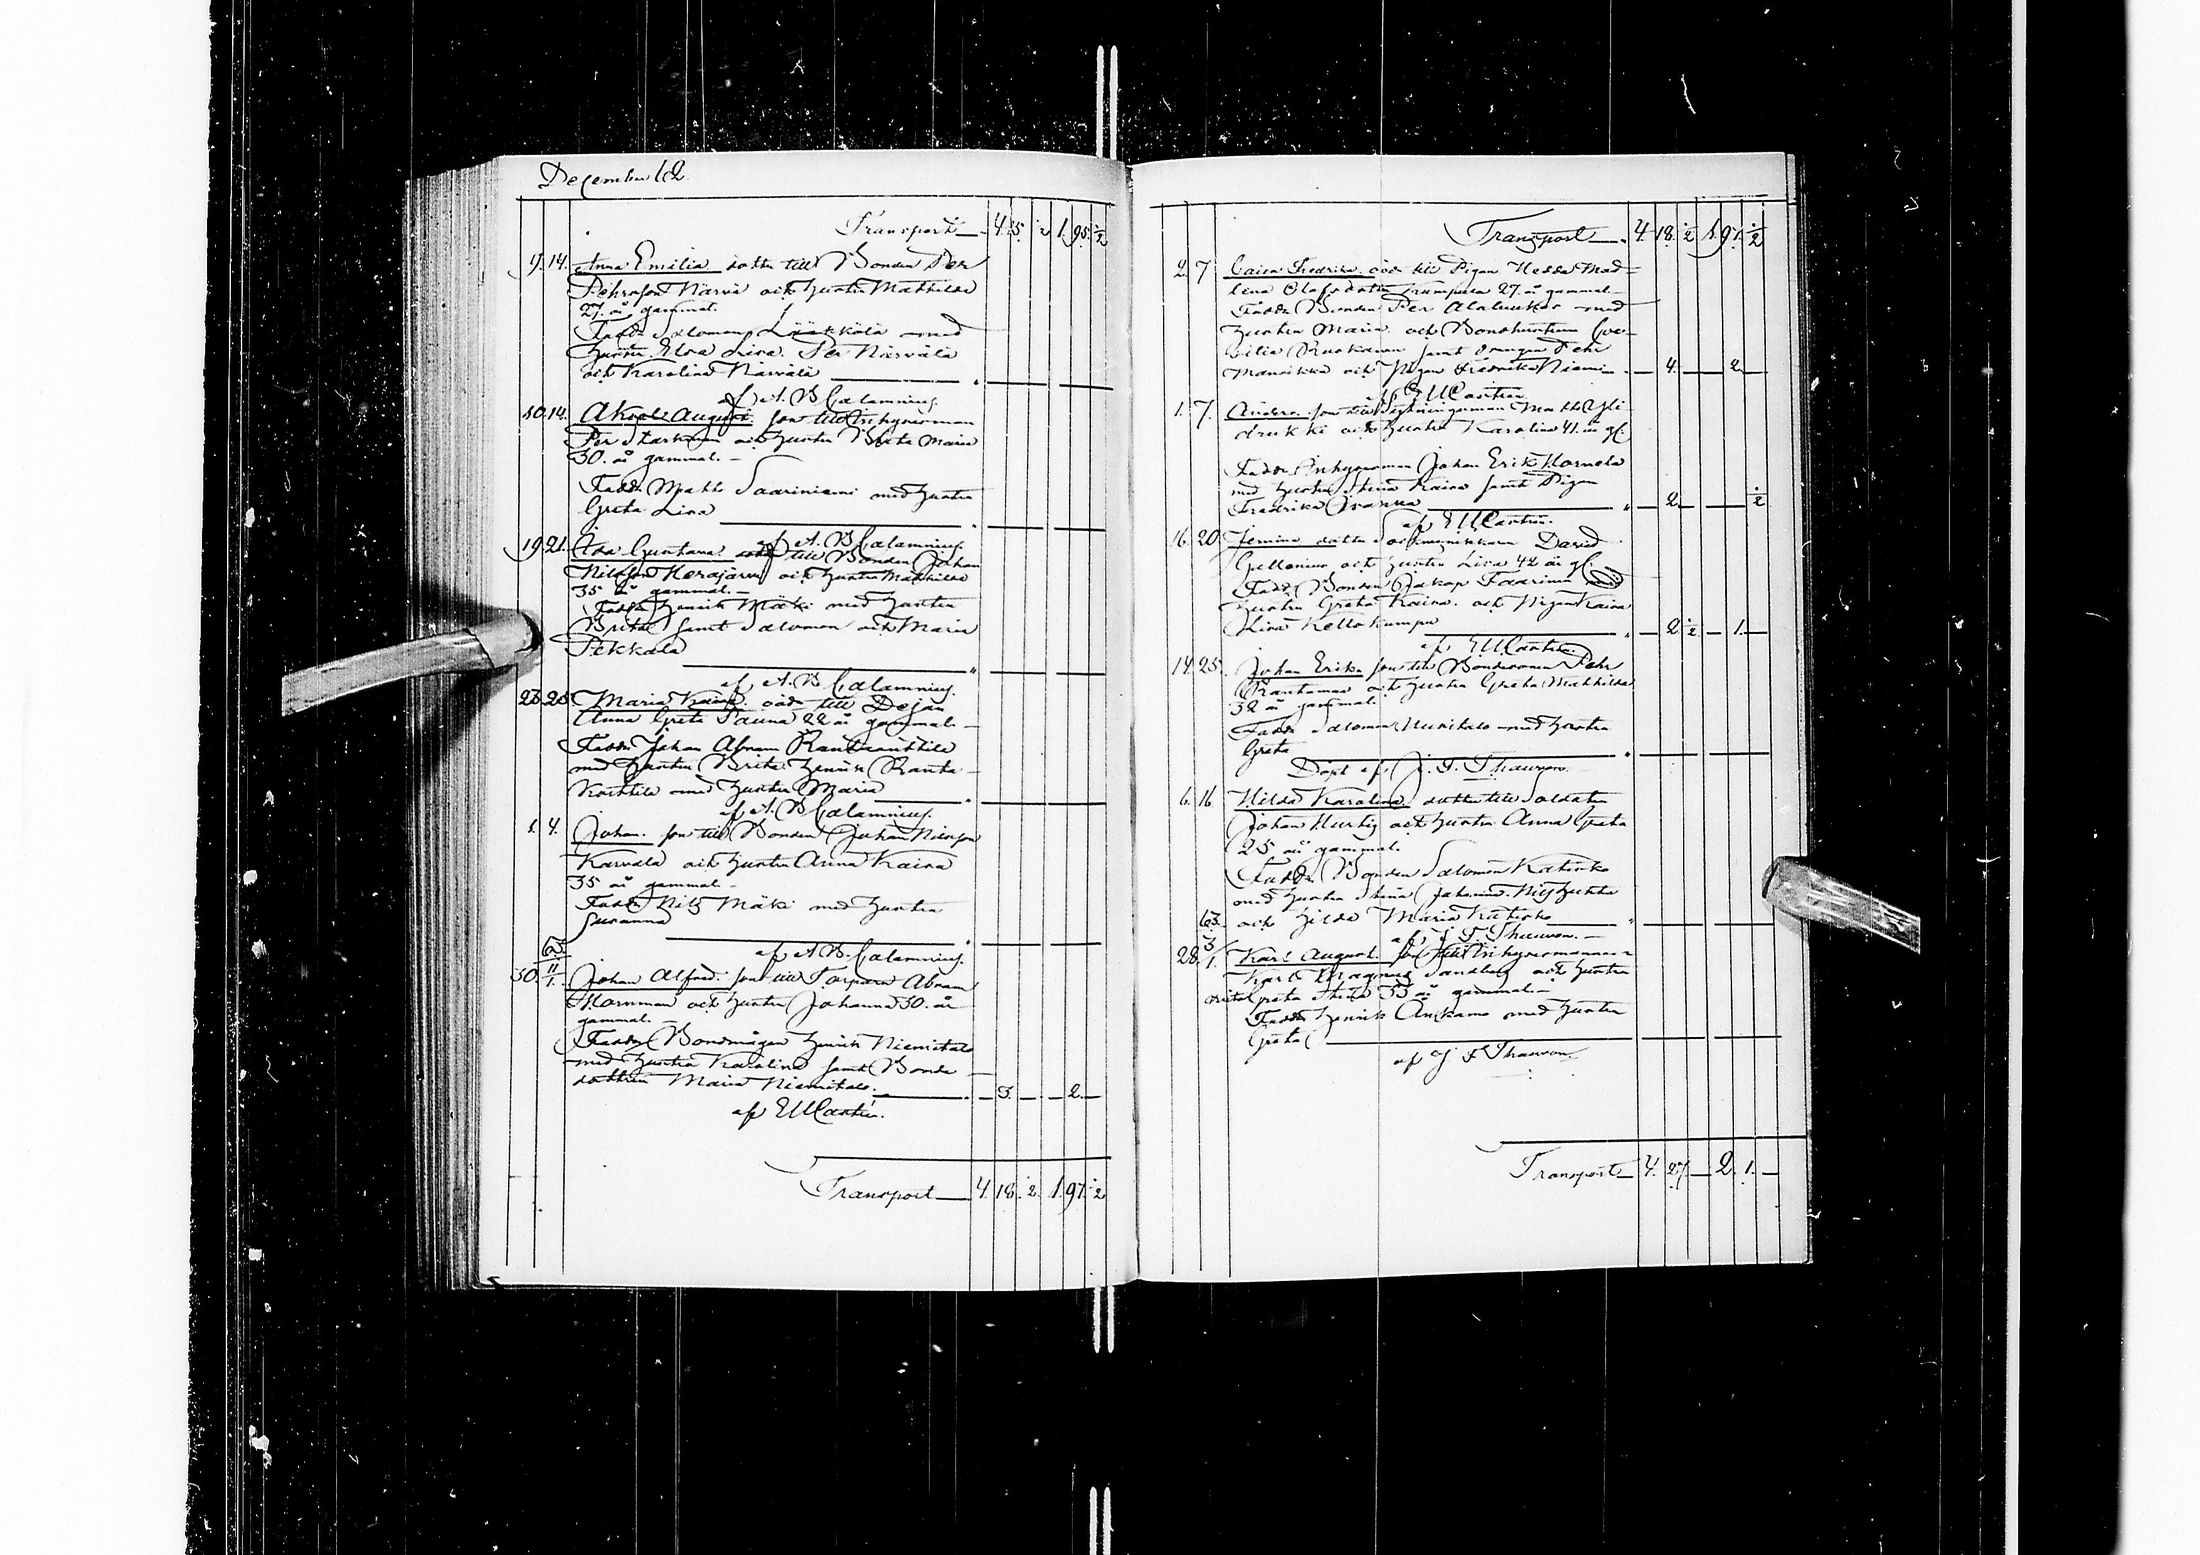 December 62
Transport 4. 15. ½ 1. 95. ½
9. 14. Anna Emilia dotter till Bonden Per
Pehrsson Närvä och hustru Mathilda
27. år gammal.
Fadd. Salomon Lääkkölä med
hustru Elsa Lisa. Per Närvälä
och Karolina Närvälä
af A. B. Calamnius.
10. 14. August son till Inhysesman
Per och hustru Brita Maria
30. år gammal.
Fadd. Matts Saariniemi med hustru
Greta Lisa
af A. B. Calamnius.
19. 21. Ida Gustava dotter till Bonden Johan
Nilsson Kerajärvi och hustru Mathilda
35 år gammal.
Fadd. Henrik Mäki med hustru
Brita samt Salomon och Maria
Pekkala
af A. B. Calamnius.
23. 25 Maria Kaisa oäda till Dejan
Anna Greta Pauna 22 år gammal.
Fadd. Johan Abram
med hustru Brita. Henrik Ranta-
med hustru Maria
af A. B. Calamnius.
1. 4. Johan. son till Bonden Johan Nilsson
Karvala och hustru Anna Kaisa
35 år gammal.
Fadd. Nils Mäki med hustru
Susanna
af A B. Calamnius.
63.
30. 11/1. Johan Alfred. son till Torparn Abram
och hustru Johanna 30. år
gammal.
Fadd. Bondmågen Henrik Niemitalo
med hustru Karolina samt Bonde
dottren Maria Niemitalo. 3. 2.
af E U Castrén.
Transport 4. 18. ½ 1. 97. ½
Transport 4. 18. ½ 1. 97. ½
2. 7 Caisa Fredrika. oäda till Pigan Hedda Mad-
lena Olofsdotter 27. år gammal.
Fadd. Bonden Per Alaluukas med
hustru Maria och Bondhustrun Cec-
ilia Ruokanen samt Drängen Pehr
Mansikka och Pigan Fredrika Niemi 4. 2.
af E U Castrén.
1. 7. Anders. son till Matts Yli-
drukki och hustru Karolina 41. år gl.
Fadd. Inhysesman Johan Erik Hornela
med hustru Stina Kaisa samt Pigan
Fredrika 2. ½
af E U Castrén.
16. 20. Jemina dotter David
och hustru Lisa 42 år gl.
Fadd. Bonden Jakop Taarinen med
hustru Greta Kaisa. och Pigan Kaisa
Lisa Kellokumpu 2 ½ 1.
af E U Castrén.
14. 25. Johan Erik son till Bondesonen Pehr
Rantamaa och hustru Greta Mathilda
32 år gammal.
Fadd. Salomon med hustru
Greta
Döpt af J. F. Thauvón.
6. 16 Hilda Karolina dotter till Soldaten
Johan Hurtig och hustru Anna Greta
25 år gammal.
Fadd. Bonden Salomon Katisko
med hustru Stina Johanna.
och Hilda Maria Katisko
af J F Thauvón.
63.
28. 3/1. Karl August. son till Inhysesmannen
Karl Magnus Sandberg och hustru
Greta Stina 33 år gammal.
Fadd. Henrik Ankamo med hustru
Greta
af J F Thauvón.
Transport 4. 27. 2. 1.